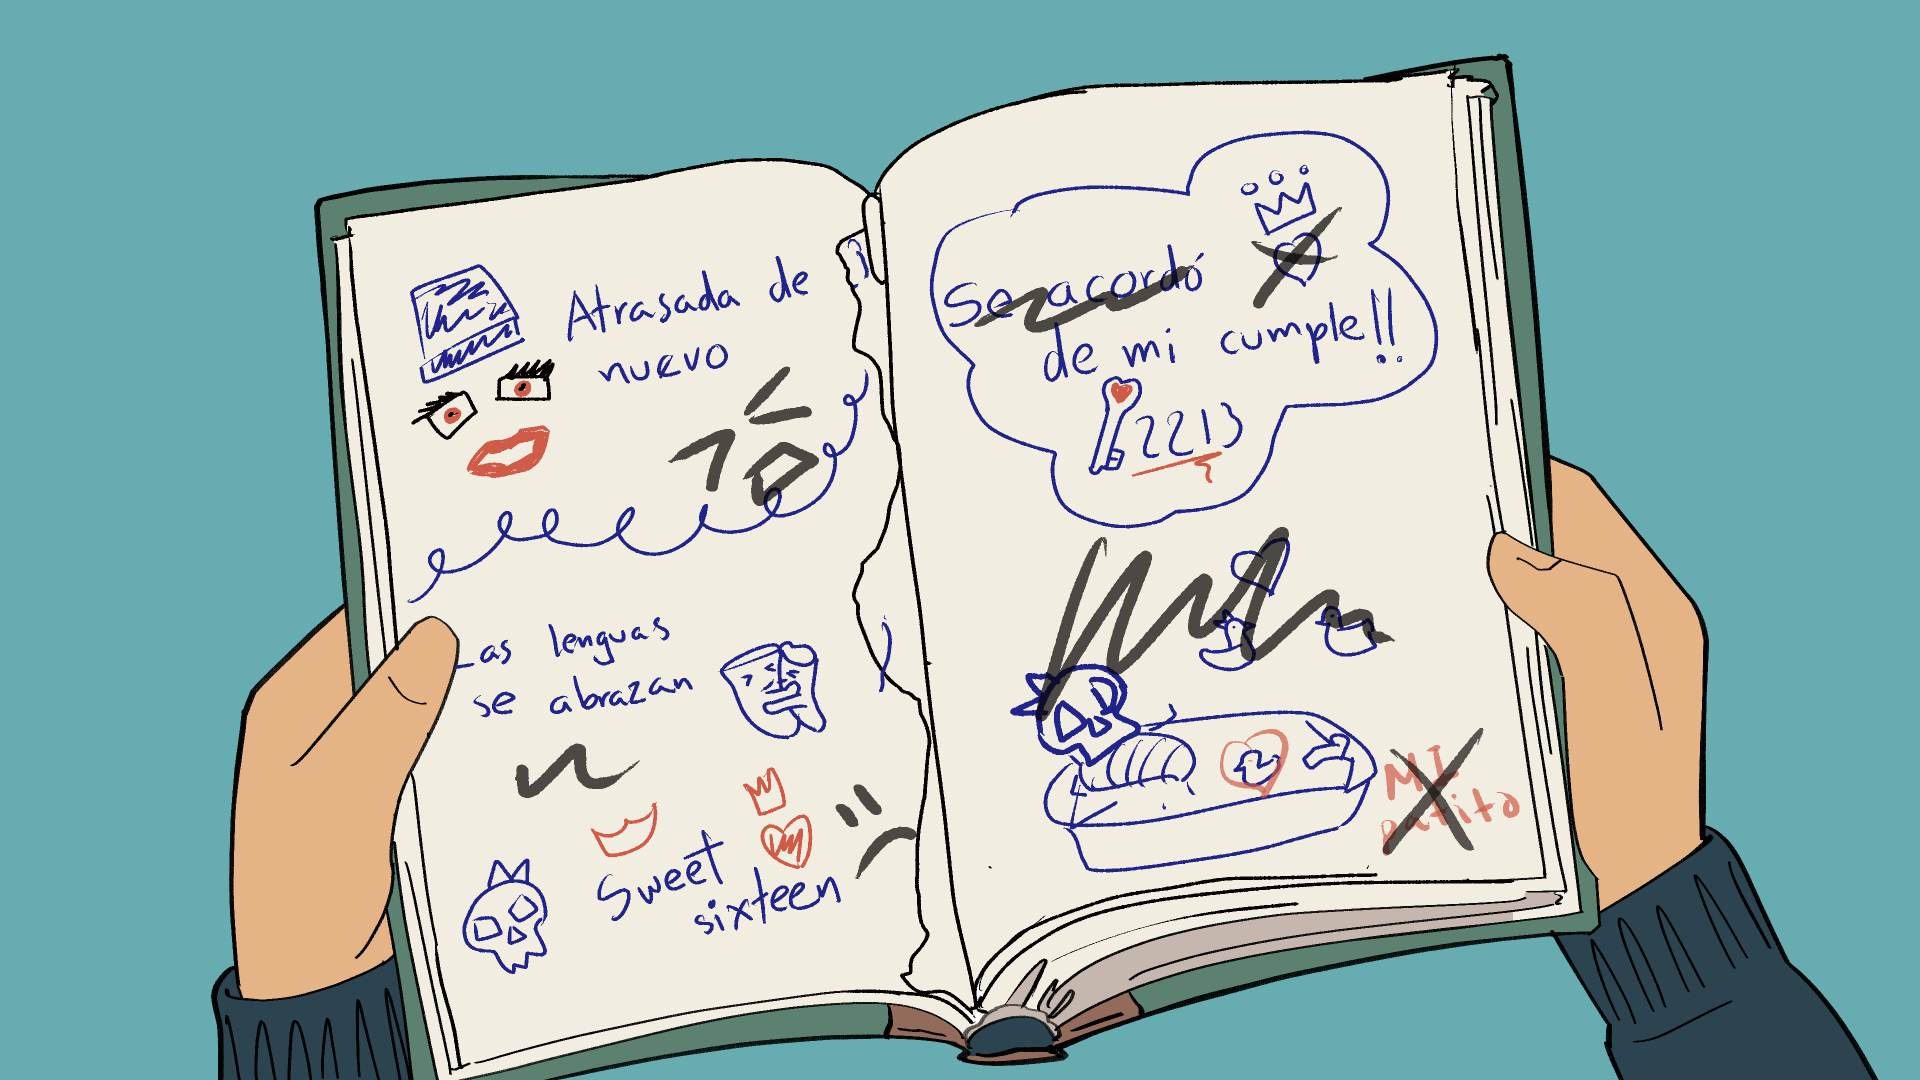 Atrasada de
nuevo
Las lenguas
se abrazan
Sweet
sixteen
Se acordó
de mi cumple!!
2213
MI
patito